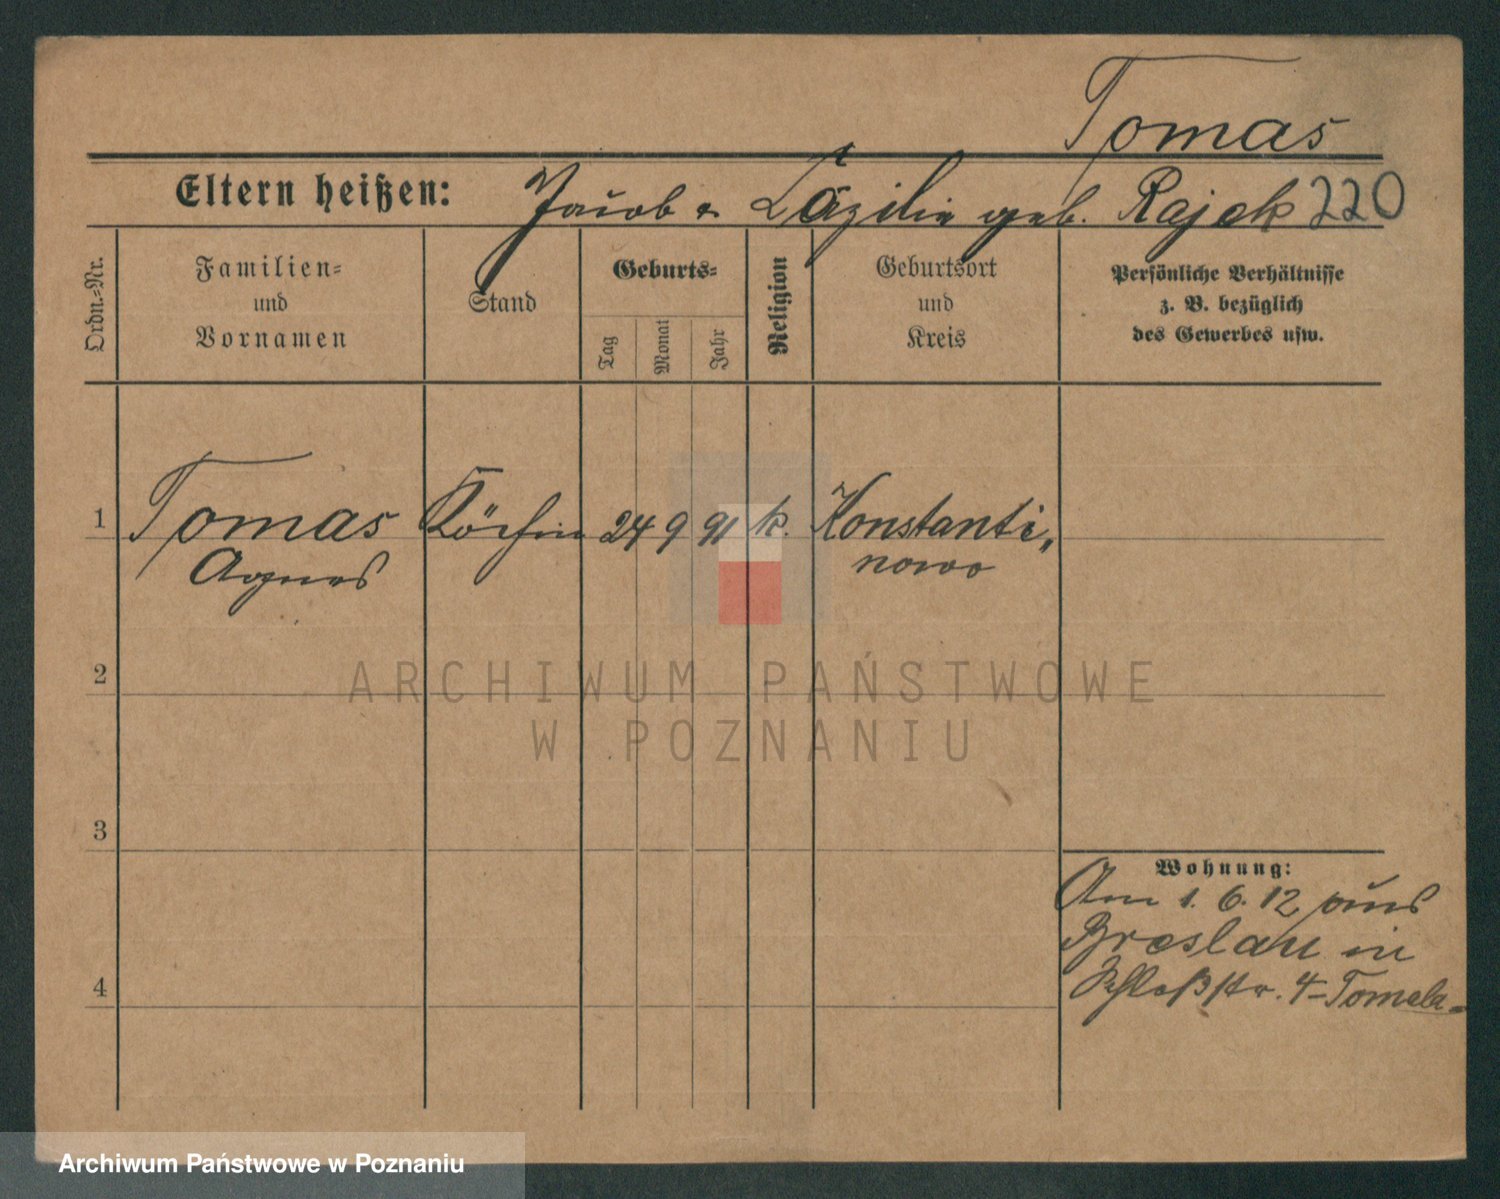 Tomas
Eltern heißen: Jacob & Cäzilie geb. Rajek 220
Ordn.-Nr.
Familien-
und
Vornamen
Stand
Geburts-
Tag
Monat
Jahr
Religion
Geburtsort
und
Kreis
Persönliche Verhältnisse
z. B. bezüglich
des Gewerbes usw.
1 Tomas Köchin 24 9 91 k. Konstanti„
Agnes nowo
2
ARCHIWUM PAŃSTWOWE
W POZNANIU
3
Wohnung:
Am 1. 6. 12 aus
Breslau in
4 Schloßstr. 4-
Archiwum Państwowe w Poznaniu